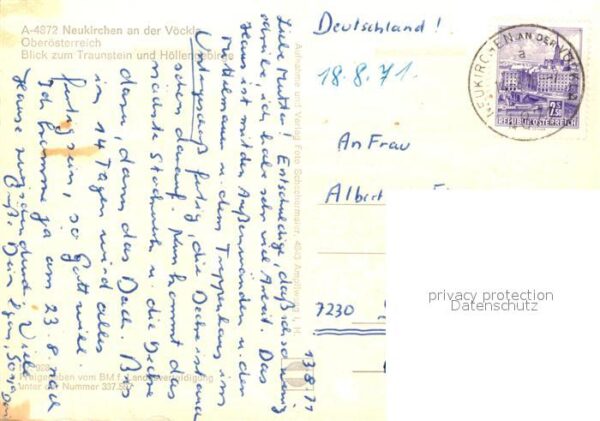 A-4872 Neukirchen an der Vöckla
Oberösterreich
Blick zum Traunstein und Höllengebirge
Deutschland!
18.8.71.
NEUKIRCHEN AN DER VÖCKLA
2S
7,50
REPUBLIK ÖSTERREICH
An Frau
Albert
7230
privacy protection
Datenschutz
Aufnahme und Verlag Foto
13.8.71
Liebe Mutter! Entschuldige, daß ich so wenig
schreibe, ich habe sehr viel Arbeit. Das
Haus ist mit den Außenwänden u. den
Mittelmauern u. dem Treppenhaus im
Untergeschoß fertig, die Decke ist auch
schon darauf. Nun kommt das
nächste Stockwerk u. die Decke
dann, dann das Dach. Bis
in 14 Tagen wird alles
fertig sein, so Gott will.
Ich komme ja am 23.8. nach
Hause zurück
Dein
Freigegeben vom BM f. Landesverteidigung
unter der Nummer